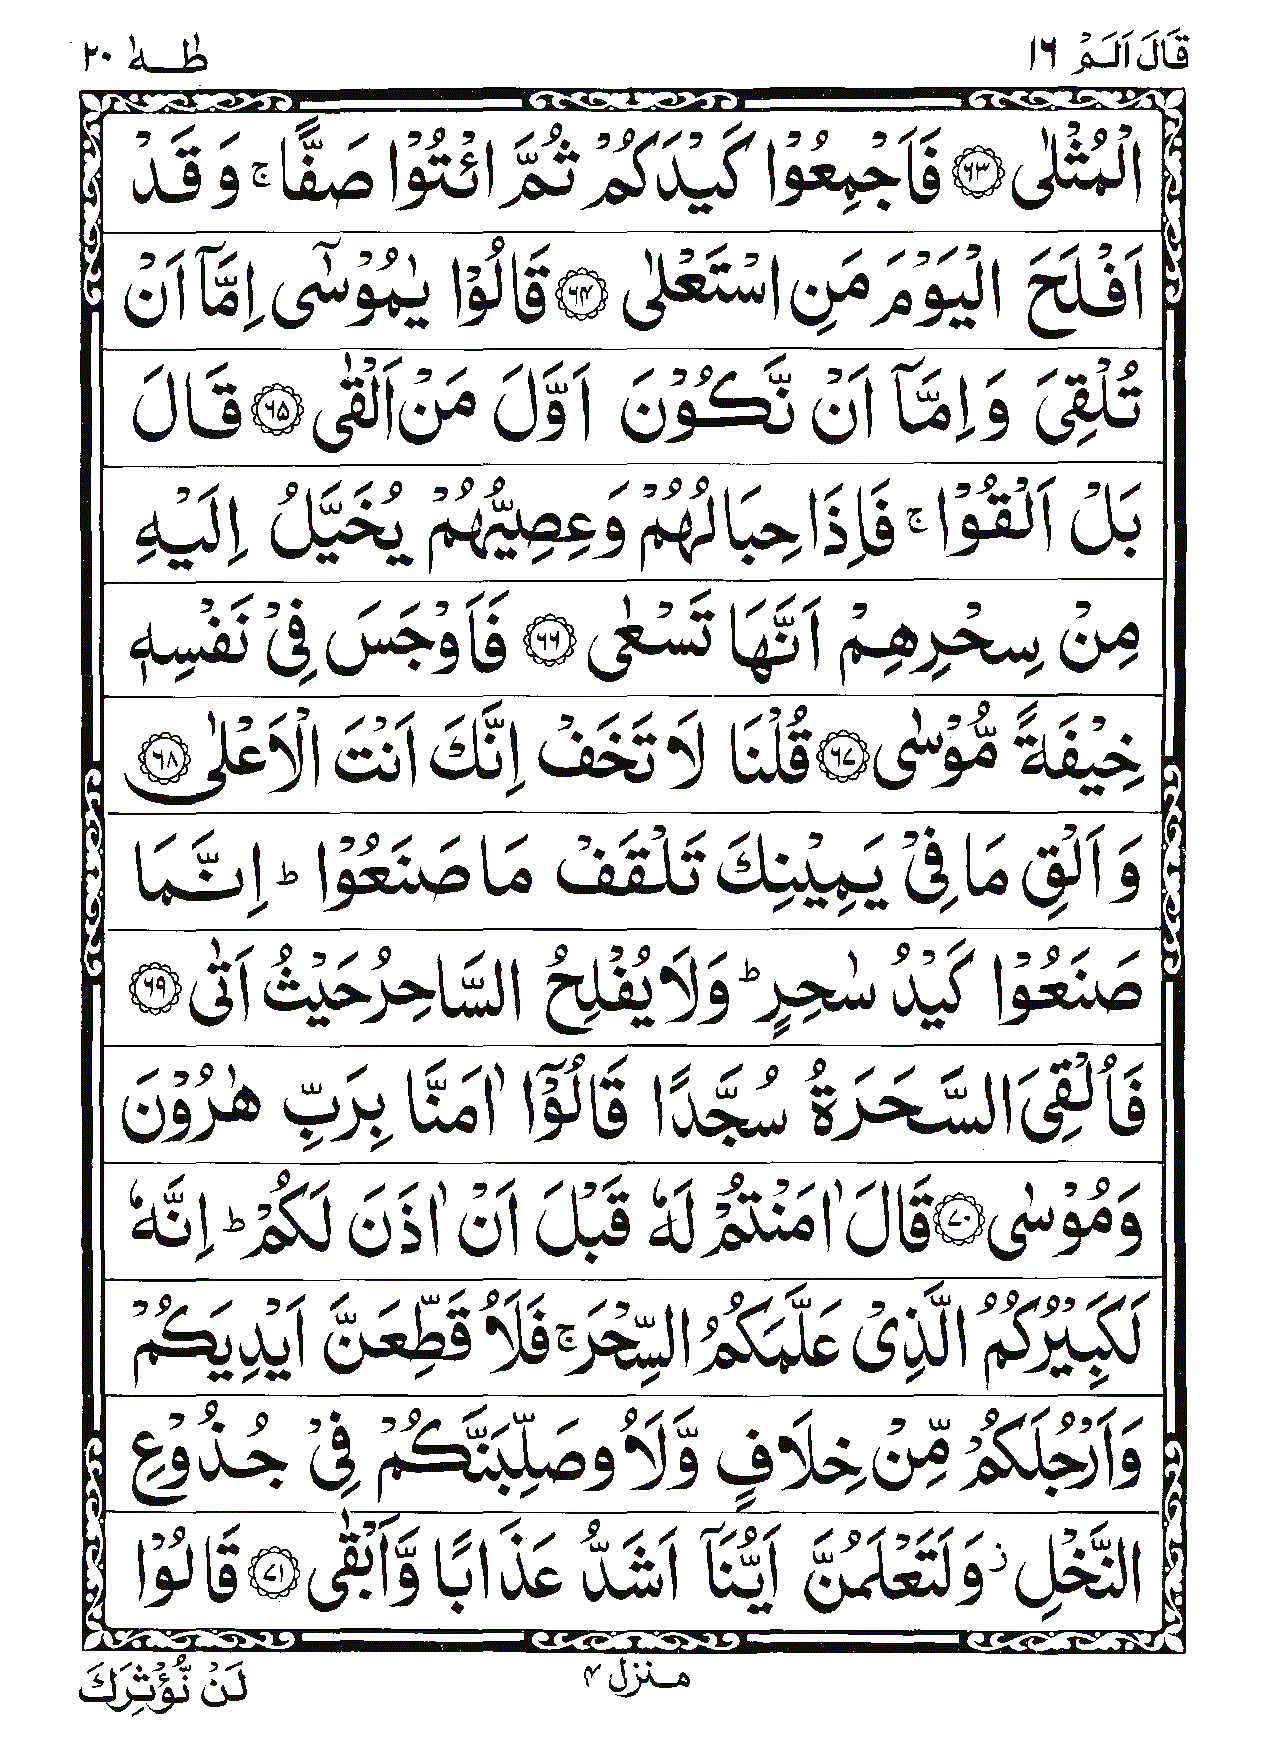 قَالَ اَلَمْ ١٦ طٰهٰ ٢٠
الْمُثْلٰى ۝٦٣ فَاَجْمِعُوْا كَيْدَكُمْ ثُمَّ ائْتُوْا صَفًّا ۚ وَقَدْ
اَفْلَحَ الْيَوْمَ مَنِ اسْتَعْلٰى ۝٦٤ قَالُوْا يٰمُوْسٰٓى اِمَّآ اَنْ
تُلْقِىَ وَاِمَّآ اَنْ نَّكُوْنَ اَوَّلَ مَنْ اَلْقٰى ۝٦٥ قَالَ
بَلْ اَلْقُوْا ۚ فَاِذَا حِبَالُهُمْ وَعِصِيُّهُمْ يُخَيَّلُ اِلَيْهِ
مِنْ سِحْرِهِمْ اَنَّهَا تَسْعٰى ۝٦٦ فَاَوْجَسَ فِىْ نَفْسِهٖ
خِيْفَةً مُّوْسٰى ۝٦٧ قُلْنَا لَا تَخَفْ اِنَّكَ اَنْتَ الْاَعْلٰى ۝٦٨
وَاَلْقِ مَا فِىْ يَمِيْنِكَ تَلْقَفْ مَا صَنَعُوْا ؕ اِنَّمَا
صَنَعُوْا كَيْدُ سٰحِرٍ ؕ وَلَا يُفْلِحُ السَّاحِرُ حَيْثُ اَتٰى ۝٦٩
فَاُلْقِىَ السَّحَرَةُ سُجَّدًا قَالُوْٓا اٰمَنَّا بِرَبِّ هٰرُوْنَ
وَمُوْسٰى ۝٧٠ قَالَ اٰمَنْتُمْ لَهٗ قَبْلَ اَنْ اٰذَنَ لَكُمْ ؕ اِنَّهٗ
لَكَبِيْرُكُمُ الَّذِىْ عَلَّمَكُمُ السِّحْرَ ۚ فَلَاُقَطِّعَنَّ اَيْدِيَكُمْ
وَاَرْجُلَكُمْ مِّنْ خِلَافٍ وَّلَاُوصَلِّبَنَّكُمْ فِىْ جُذُوْعِ
النَّخْلِ ز وَلَتَعْلَمُنَّ اَيُّنَآ اَشَدُّ عَذَابًا وَّاَبْقٰى ۝٧١ قَالُوْا
منزل ٤
لَنْ نُّؤْثِرَكَ